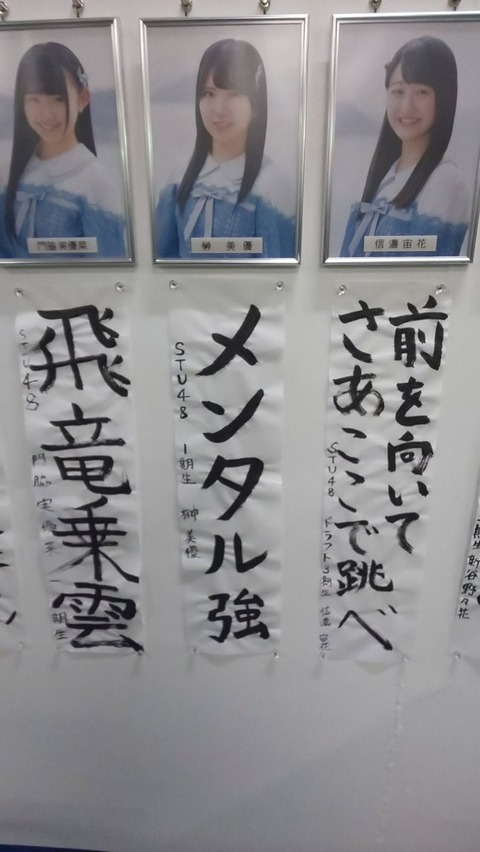 門脇実優菜
榊 美優
信濃宙花
飛竜乗雲
STU48
門脇実優菜 1期生
メンタル強
STU48 1期生 榊美優
前を向いて
さあここで跳べ
STU48 ドラフト3期生 信濃宙花
1期生 新谷野々花